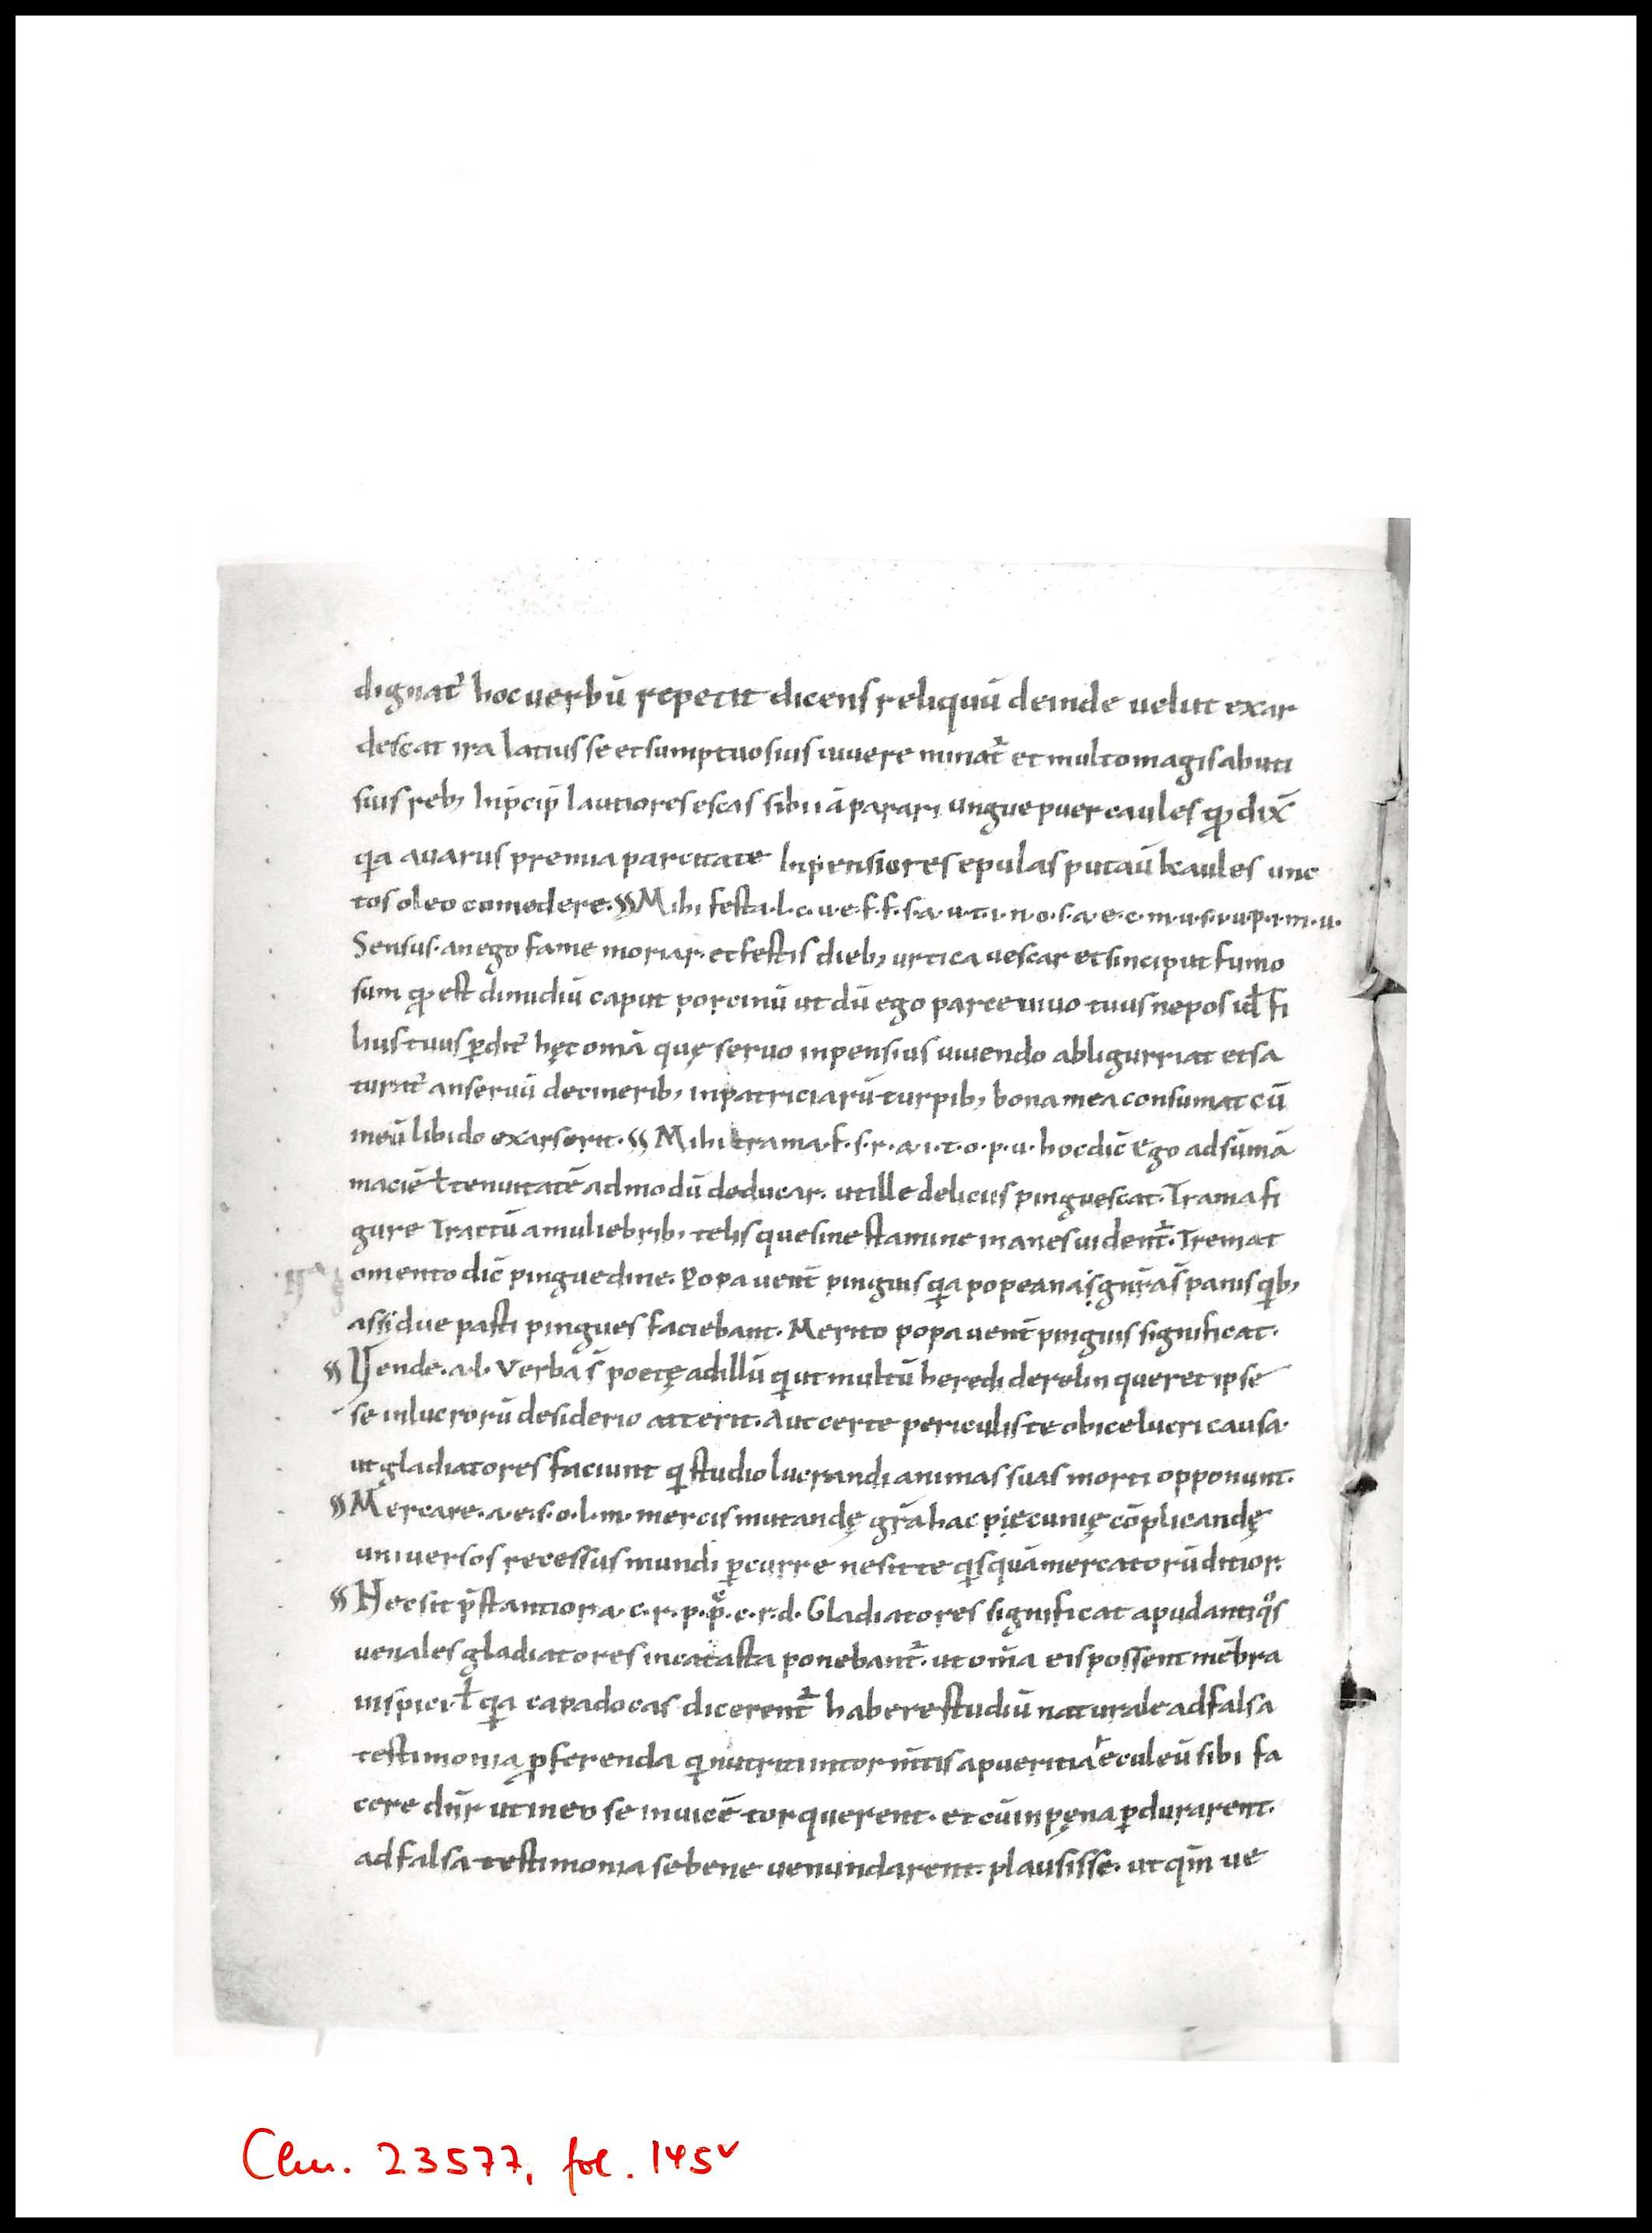 dignat᷑ hoc uerbū repetit dicens reliquū deinde uelut exar
descat ira latius se et sumptuosius uiuere minat᷑ et multo magis abuti
suis reb; lautiores escas sibi iā parari ungue puer caules dix̄
qa auarus parcitate inpensiores epulas caules unc
tos oleo comedere. Mihi festa.l.c.u.e.f.f.s.a.u.t.i.n.o.s.a.e.c.m.u.s.i.u.p.i.m.u.
Sensus. an ego fame moriar. et festis dieb; urtica uescar et sinciput fumo
sum est dimidiū caput porcinū ut dū ego parce uiuo tuus nepos id ł fi
lius tuus hęc omā quę seruo inpensius uiuendo abligurriat et sa
turat᷑ anserum decinerib; in patriciarū turpib; bona mea consumat cū
meū libido exarserit. Mihi trama.f.s.r.a.i.t.o.p.u. hoc dic̄ Ego ad sūmā
maciē ł tenuitatē ad modū deducar. ut ille deliciis pinguescat. Trama fi
gure Tractū a muliebrib; telis que sine stamine inanes uident᷑. Tremat
omento dic̄ pinguedine. Popa uent̄ pinguis qa popeana panis qib;
assidue pasti pingues faciebant. Merito popa uent̄ pinguis significat.
Uende.a.l. Verba s̄ poetę ad illū qi ut multū heredi derelinqueret ipse
se in lucrorū desiderio atterit. Aut certe periculis te obice lucri causa.
ut gladiatores faciunt qi studio lucrandi animas suas morti opponunt.
Mercare.a.e.s.o.l.m. mercis mutandę grā hac piecunię cōplicandę
uniuersos recessus mundi ꝑcurre ne sit te qisquā mercatorū ditior.
Hec sit p̄stantior.a.c.r.p.p.c.r.d. Gladiatores significat apud antiqos
uenales gladiatores in catasta ponebant᷑. ut om̄a eis possent mēbra
inspici. ł qa capadocas dicerent᷑ habere studiū naturale ad falsa
testimonia ꝓferenda qi nutriti in tormtis a pueritia eculeū sibi fa
cere dn̄r ut in eo se inuicē torquerent. et cū in pęna ꝑdurarent.
ad falsa testimonia se bene uenundarent. plausisse. ut qm̄ ue
Clm. 23577, fol. 145v